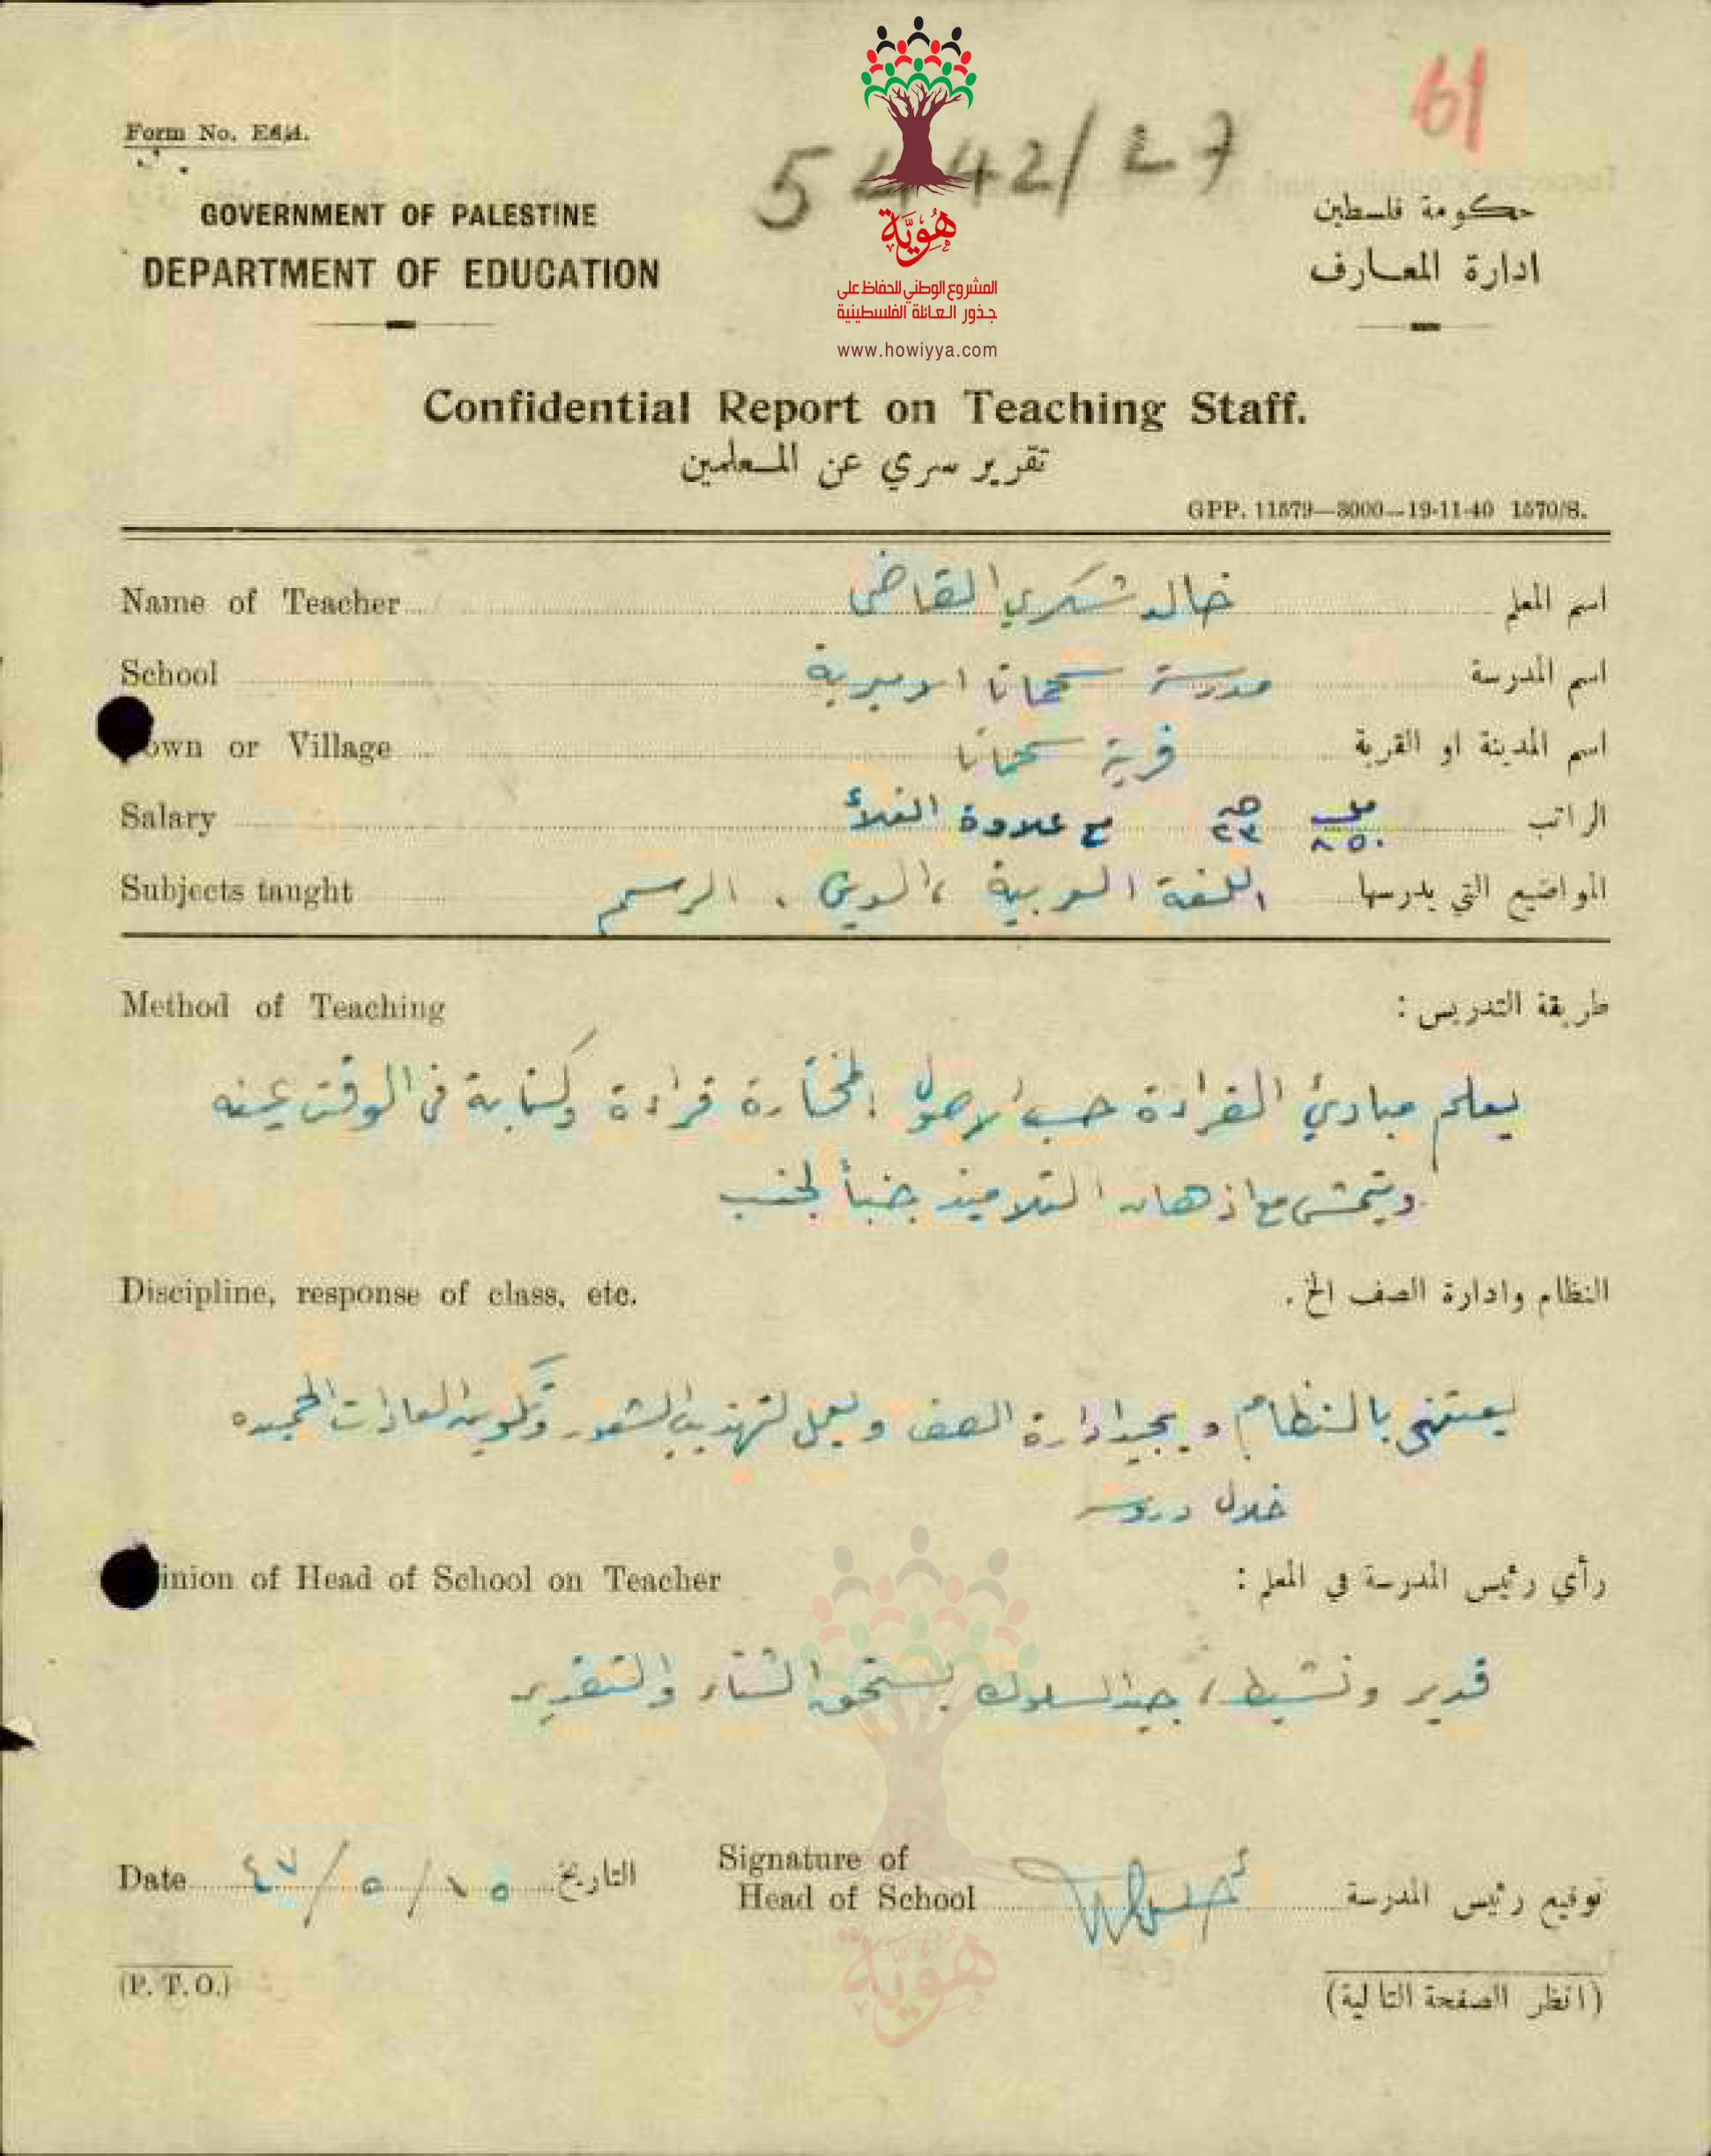 61
5442/27
Form No. Ed/4.
GOVERNMENT OF PALESTINE
حكومة فلسطين
DEPARTMENT OF EDUCATION
ادارة المعارف
هُوِيَّة
المشروع الوطني للحفاظ على
جذور العائلة الفلسطينية
www.howiyya.com
Confidential Report on Teaching Staff.
تقرير سري عن المعلمين
GPP. 11579—3000—19-11-40 1570/S.
Name of Teacher خالد شكري القاضي اسم المعلم
School مدرسة سحماتا الاميرية اسم المدرسة
own or Village قرية سحماتا اسم المدينة او القرية
Salary الراتب ملـ ٨٥٠ جـ ٢٣ مع علاوة الغلاء
Subjects taught اللغة العربية، الدين، الرسم المواضيع التي يدرسها
Method of Teaching طريقة التدريس :
يعلم مبادئ القراءة حسب الاصول المختارة قراءة وكتابة في الوقت عينه
ويتمشى مع اذهان التلاميذ جنباً لجنب
Discipline, response of class, etc. النظام وادارة الصف الخ .
يعتني بالنظام ويجيد ادارة الصف ويعمل لتهذيب الشعور وتكوين العادات الحميده
خلال دروسه
inion of Head of School on Teacher رأي رئيس المدرسة في المعلم :
قدير ونشيط، جيد السلوك يستحق الثناء والتقدير
Date ١٥/٥/٤٧ التاريخ
Signature of
Head of School توقيع رئيس المدرسة
(P. T. O.) (انظر الصفحة التالية)
هُوِيَّة